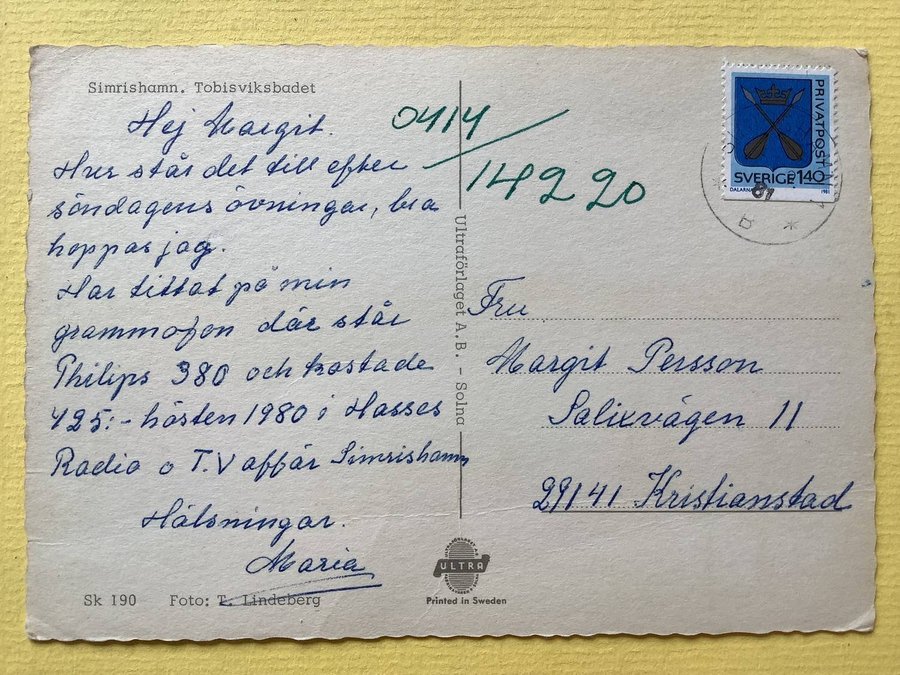 Simrishamn. Tobisviksbadet
Hej Margit.
Hur står det till efter
söndagens övningar, bra
hoppas jag.
Har tittat på min
grammofon där står
Philips 380 och kostade
425:- hösten 1980 i Hasses
Radio o T.V affär Simrishamn
Hälsningar.
Maria
Sk 190 Foto: T. Lindeberg
0414/
14220
Ultraförlaget A.B. - Solna
PRIVATPOST
SVERIGE 140
DALARNA 1981
81
Fru
Margit Persson
Salixvägen 11
29141 Kristianstad
ULTRA
Printed in Sweden